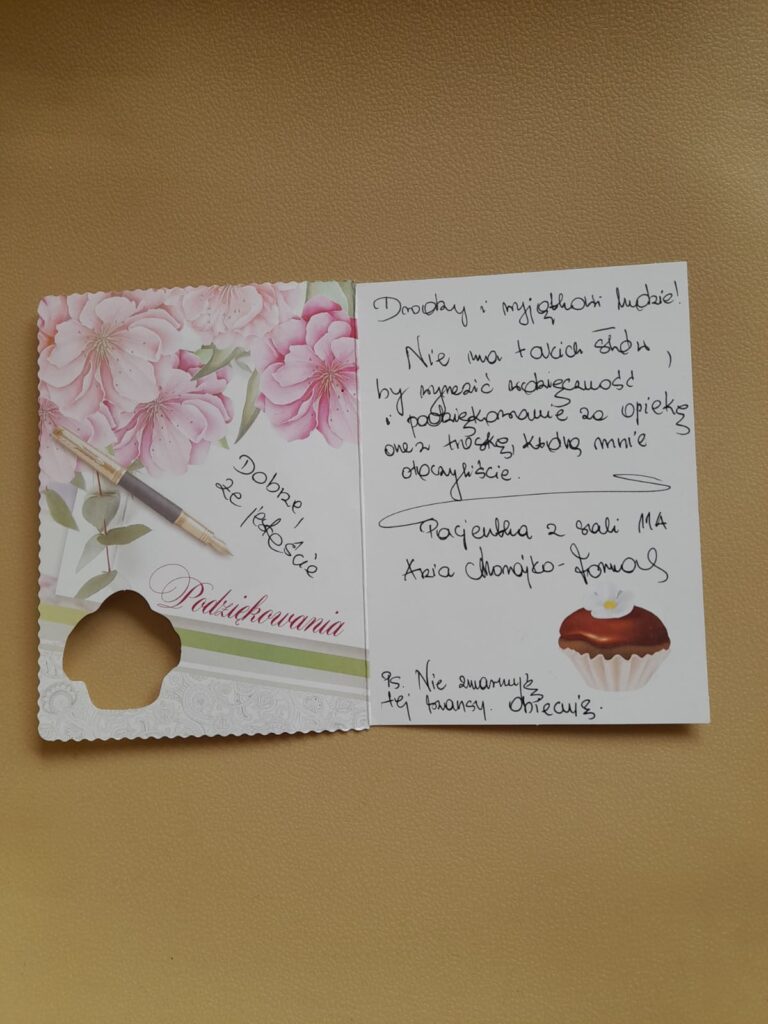 Dobrze,
że jesteście
Podziękowania
Drodzy i wyjątkowi ludzie!
Nie ma takich słów,
by wyrazić wdzięczność
i podziękowanie za opiekę
oraz troskę, którą mnie
otoczyliście.
Pacjentka z sali 11A
Ps. Nie zmarnuję
tej szansy. Obiecuję.